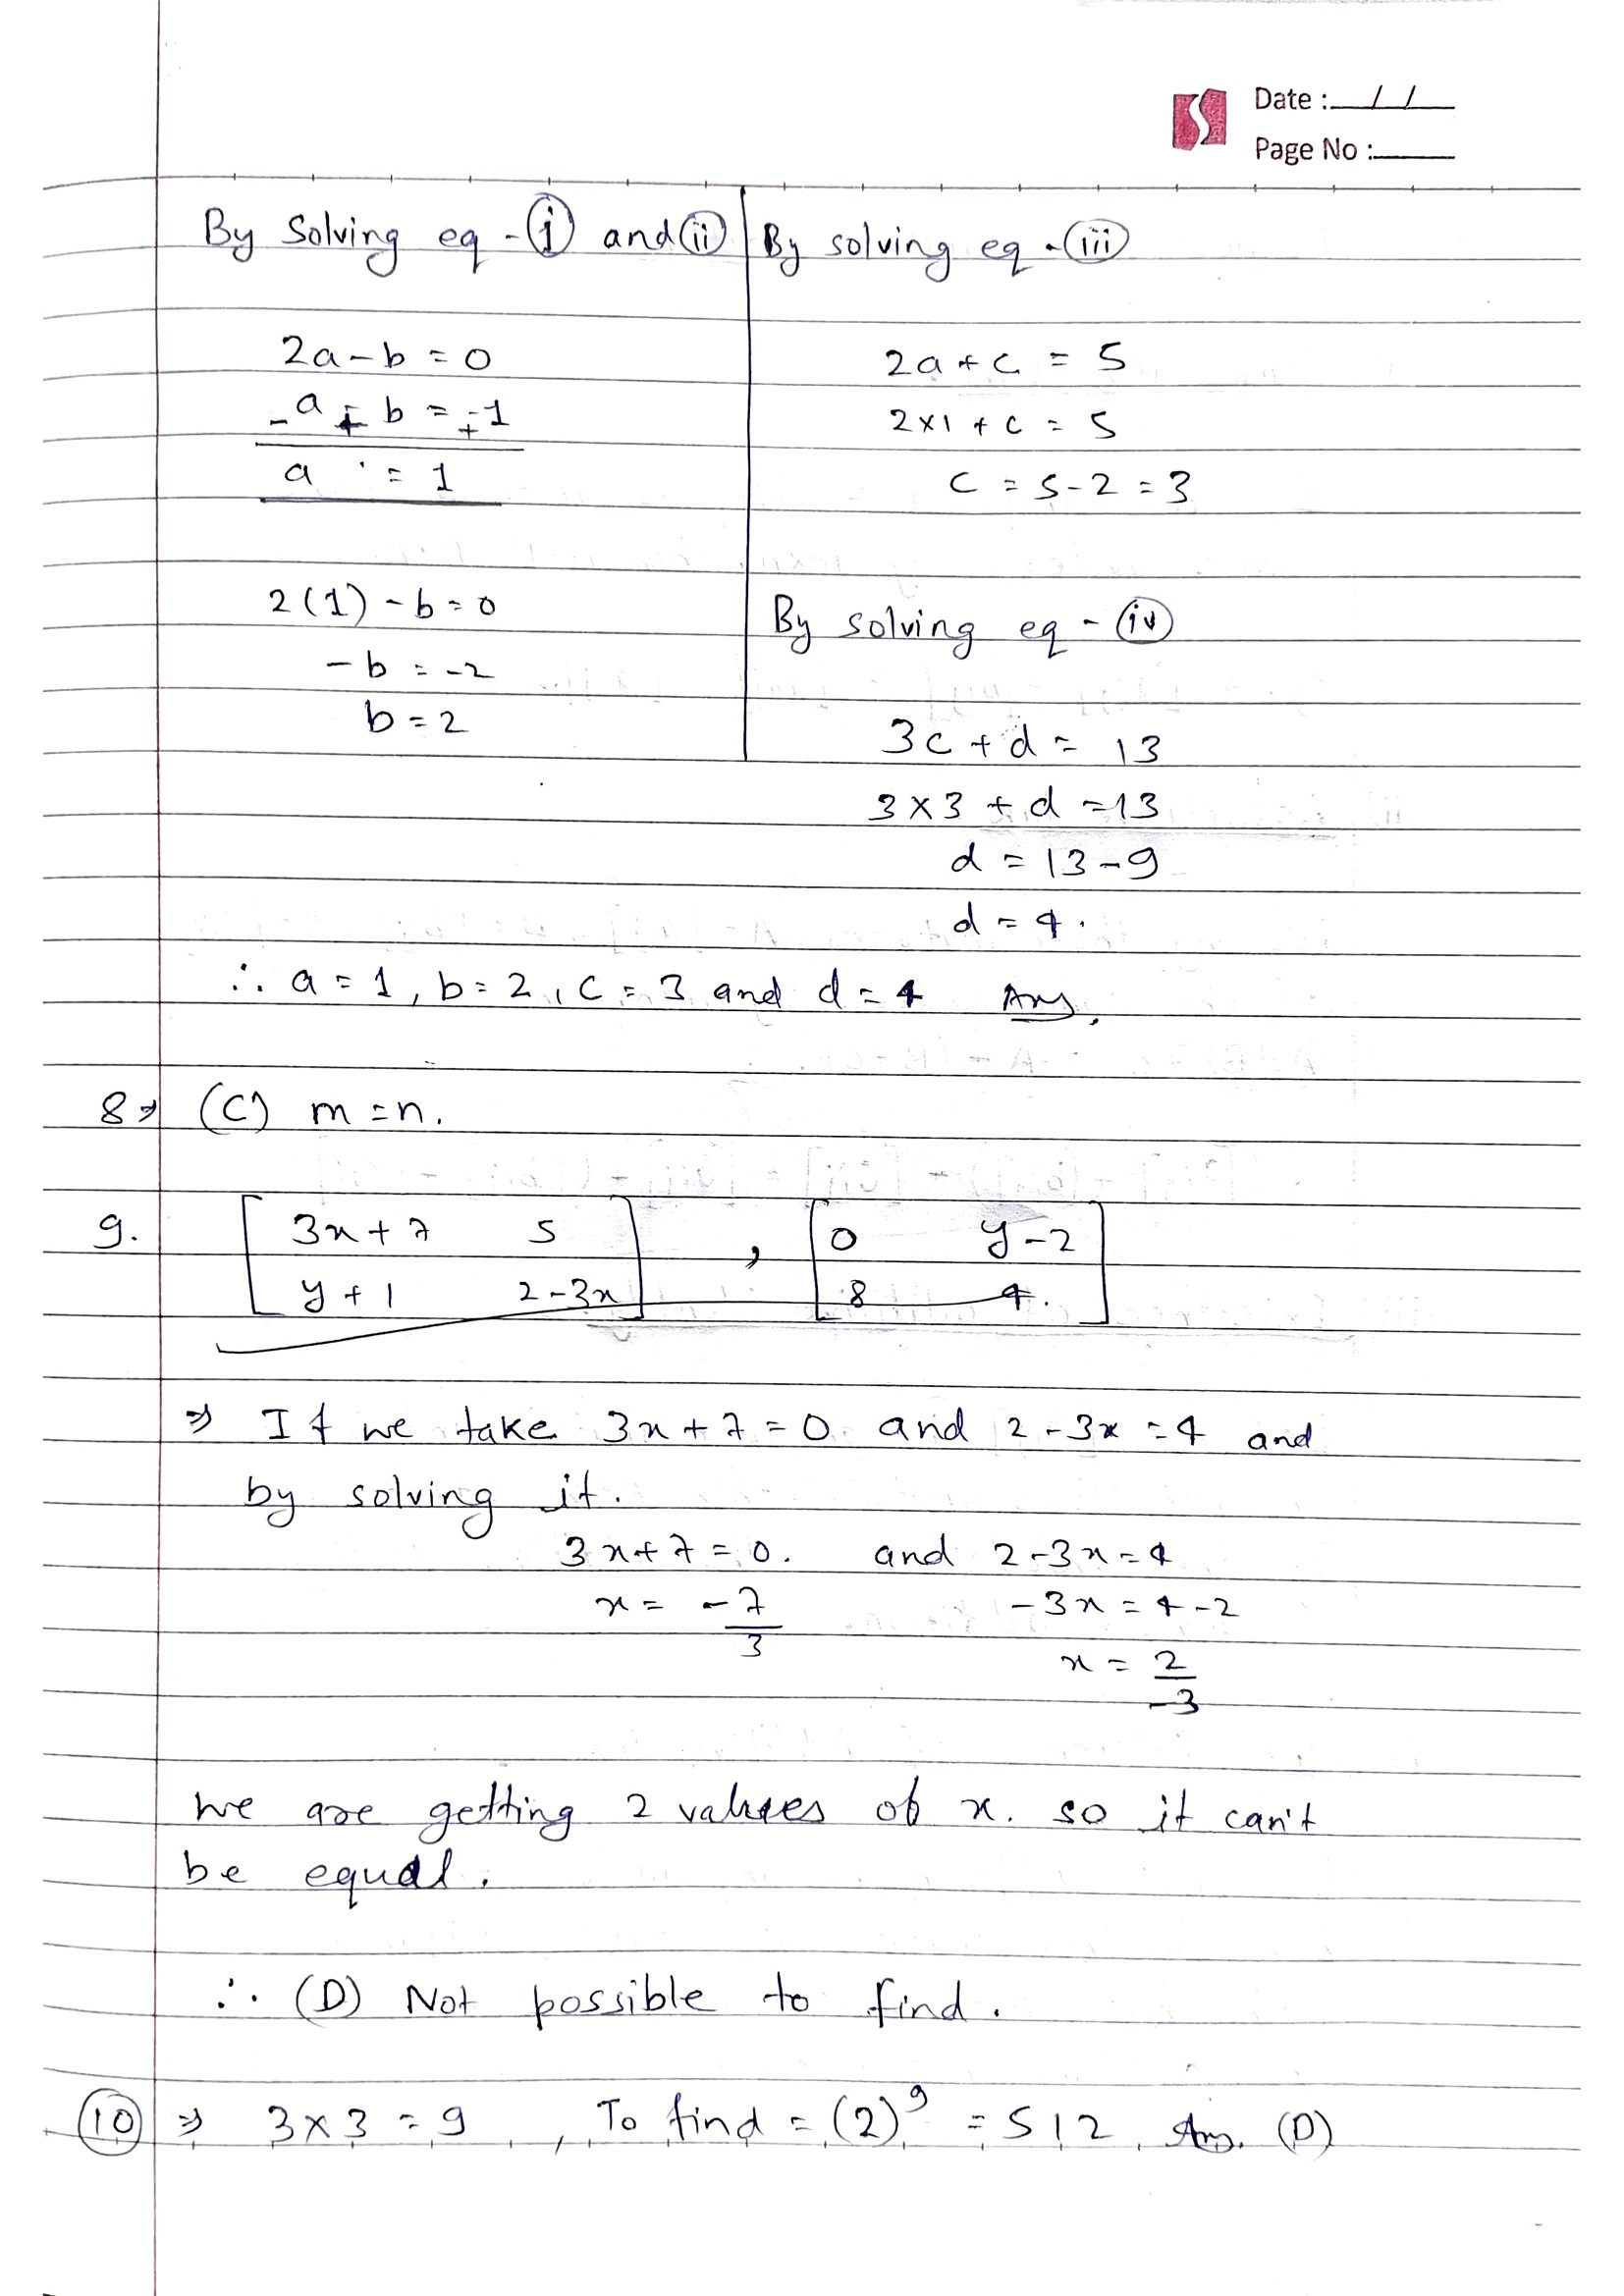 Date : / /
Page No :
By Solving eq - (i) and (ii)
2a - b = 0
- a +- b = +-1
a = 1
2(1) - b = 0
- b = -2
b = 2
By solving eq - (iii)
2a + c = 5
2×1 + c = 5
c = 5 - 2 = 3
By solving eq - (iv)
3c + d = 13
3 × 3 + d = 13
d = 13 - 9
d = 4.
∴ a = 1, b = 2, c = 3 and d = 4 Ans.
8⇒ (C) m = n.
9. [ 3x + 7 5 , [ 0 y - 2 ]
y + 1 2 - 3x ] 8 4. ]
⇒ If we take 3x + 7 = 0 and 2 - 3x = 4 and
by solving it.
3x + 7 = 0. and 2 - 3x = 4
x = -7/3 -3x = 4 - 2
x = 2/-3
we are getting 2 values of x. so it can't
be equal.
∴ (D) Not possible to find.
(10) ⇒ 3 × 3 = 9 , To find = (2)⁹ = 512 Ans. (D)